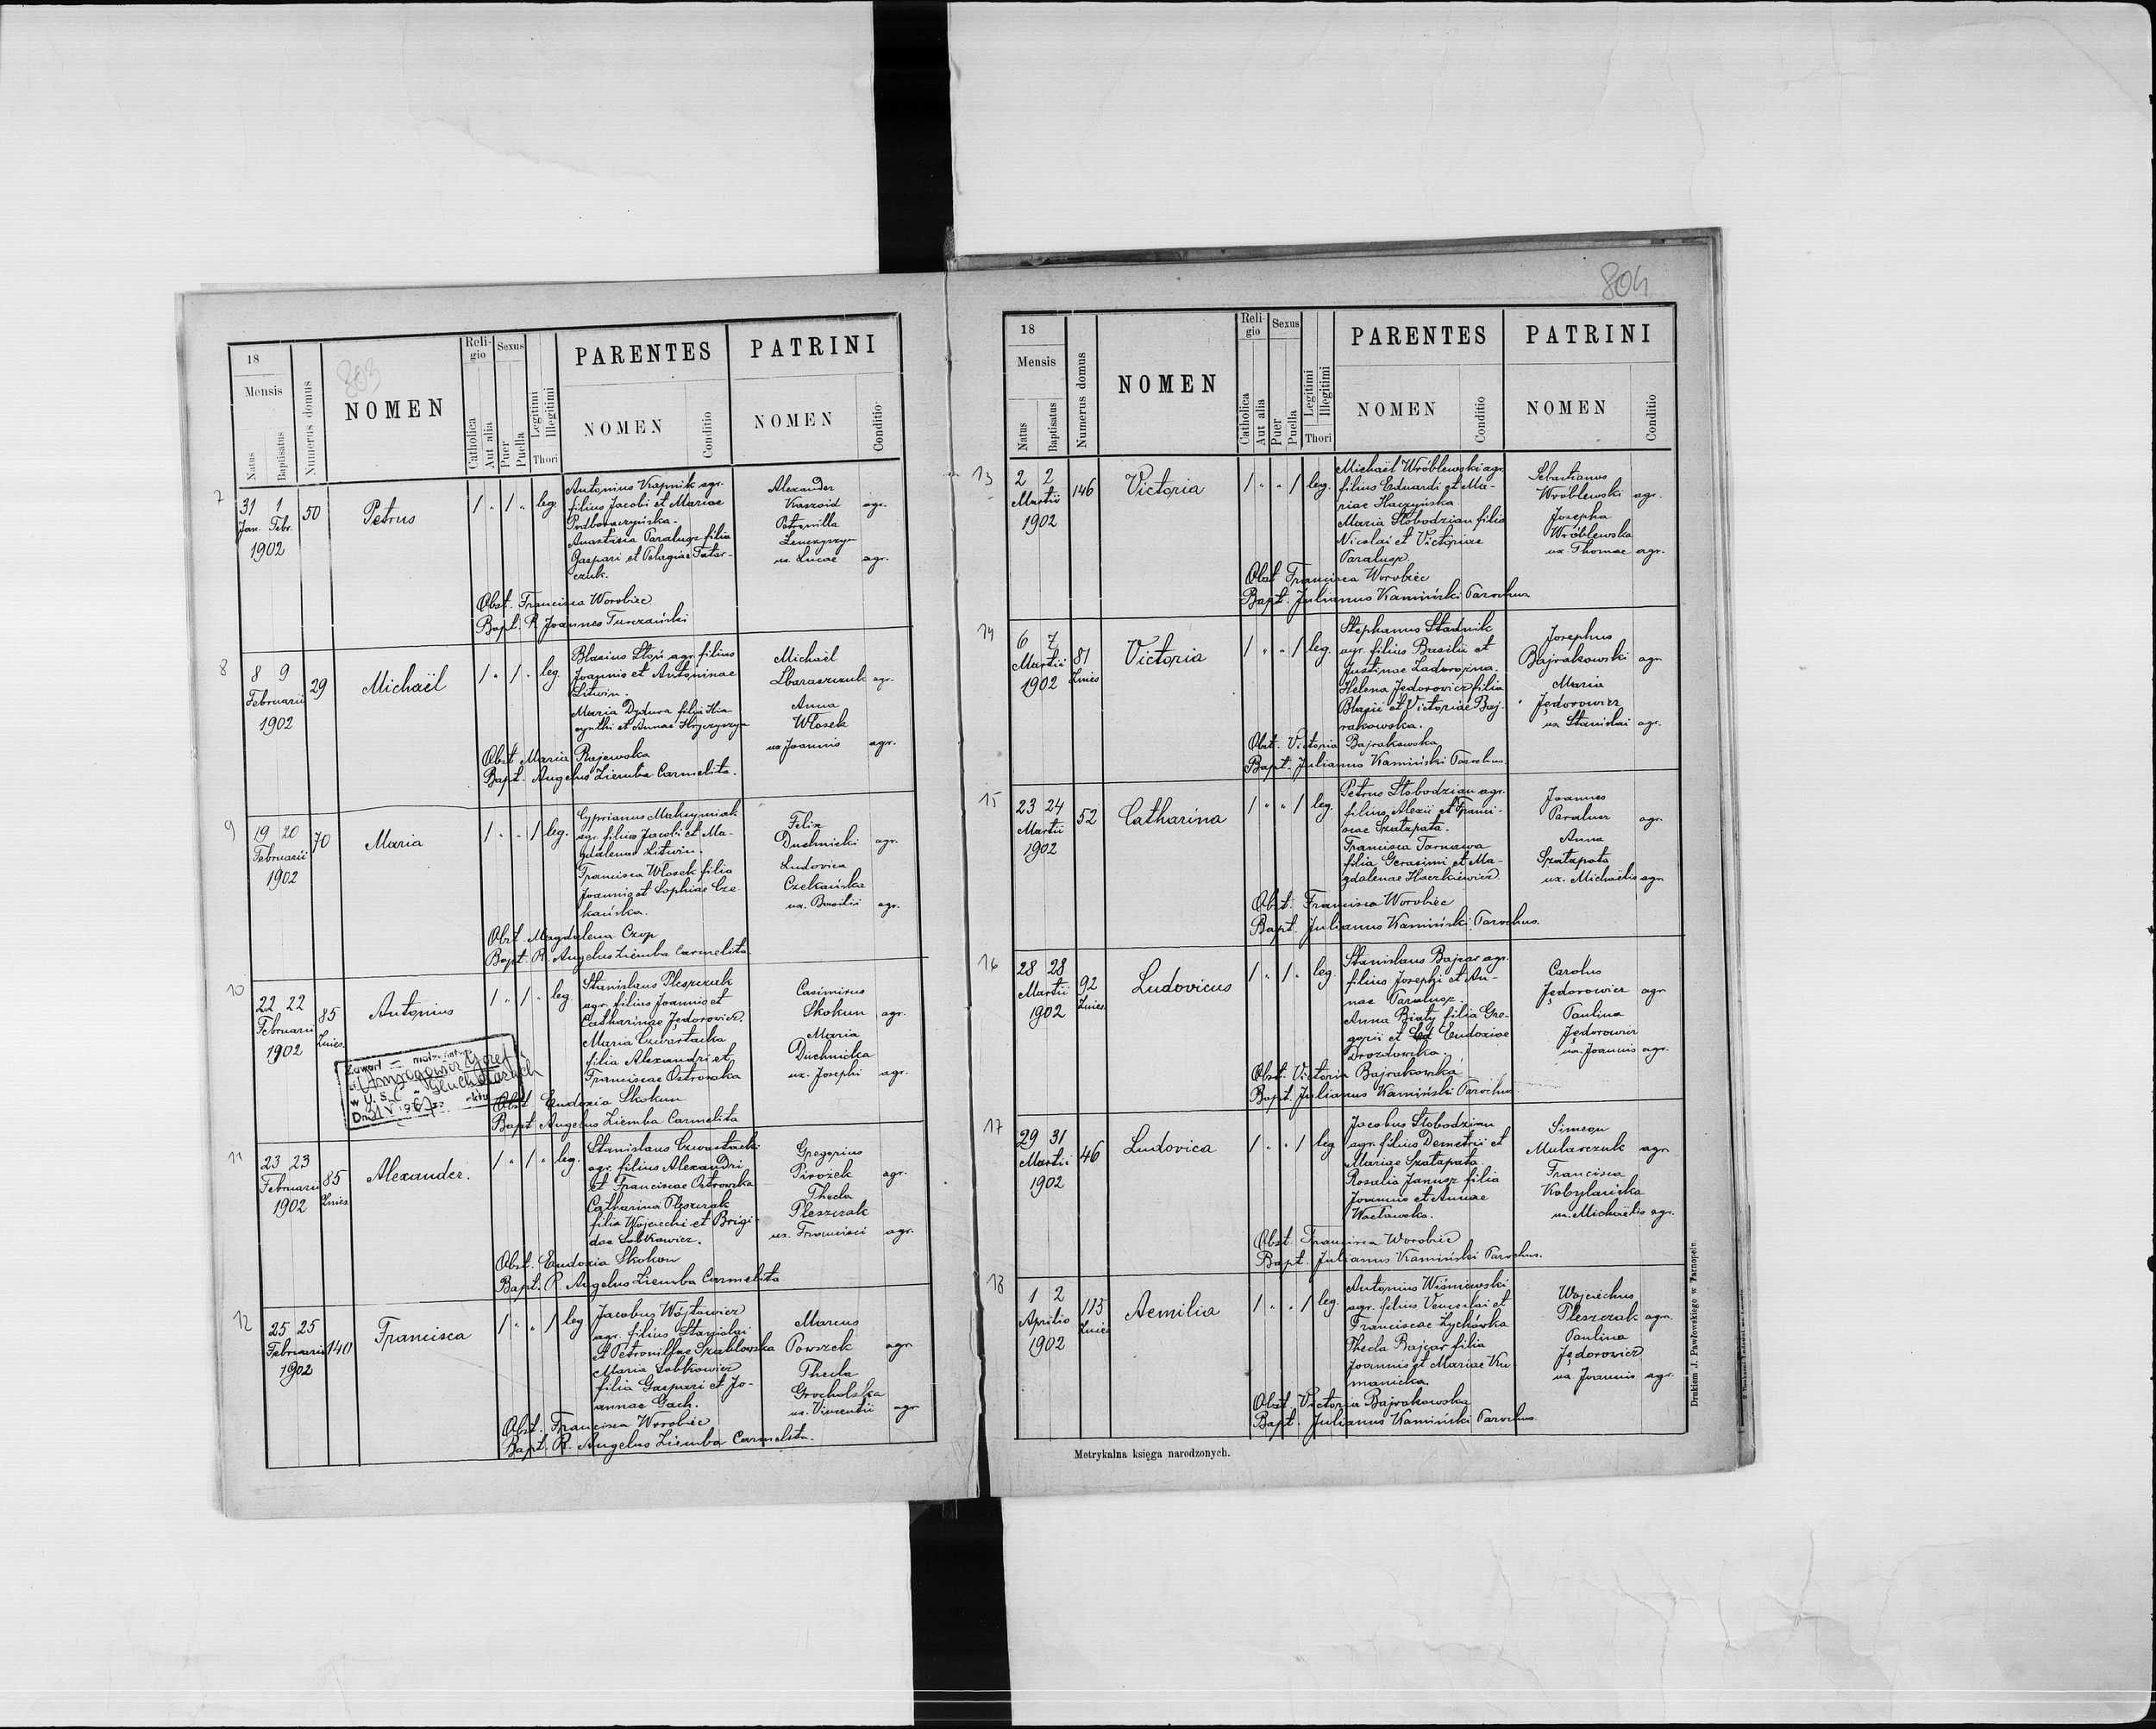 803
18
Mensis
Natus
Baptisatus
Numerus domus
NOMEN
Religio
Catholica
Aut alia
Sexus
Puer
Puella
Legitimi
Illegitimi
Thori
PARENTES
NOMEN
Conditio
PATRINI
NOMEN
Conditio
7
31 1
Jan. Febr.
1902
50
Petrus
1 " 1 " leg.
Antonius Krapnik agr.
filius Jacobi et Mariae
Podhoraczyńska.
Anastasia Paralusz filia
Gaspari et Pelagiae Tatar-
czuk.
Alexander
agr.
Petronilla
ux. Lucae agr.
Obst. Francisca Worobiec
Bapt. R. Joannes Turczański
8
8 9
Februarii
1902
29
Michaël
1 " 1 " leg.
Blasius Stoń agr. filius
Joannis et Antoninae
Litwin.
Maria Dydura filia Hia-
cynthi et Annae
Michaël
Zbaraszczuk agr.
Anna
Włosek
ux Joannis agr.
Obst Maria Rajewska
Bapt. Angelus Ziemba Carmelita.
9
19 20
Februarii
1902
70
Maria
1 " " 1 leg.
Cyprianus Maksymiak
agr. filius Jacobi et Ma-
gdalenae Litwin.
Francisca Włosek filia
Joannis et Sophiae Cze-
kańska.
Felix
Duchnicki agr.
Ludovica
Czekańska
ux. Basilii agr.
Obst. Magdalena Czop
Bapt. R. Angelus Ziemba Carmelita
10
22 22
Februarii
1902
85
Znies.
Antonius
1 " 1 " leg
Stanislaus Pleszczak
agr. filius Joannis et
Catharinae Jędorowicz.
Maria Czwartacka
filia Alexandri et
Franciscae Ostrowska
Casimirus
Skokun agr.
Maria
Duchnicka
ux. Josephi agr.
Zawarł
w U.S.C.
Obst Eudoxia Skokun
Bapt Angelus Ziemba Carmelita
11
23 23
Februarii
1902
85
Znies.
Alexander.
1 " 1 " leg.
Stanislaus Czwartacki
agr. filius Alexandri
et Franciscae Ostrowska
Catharina Pleszczak
filia Wojciechi et Brigi-
dae Sobkowicz.
Gregorius
Pirożek agr.
Thecla
Pleszczak
ux. Francisci agr.
Obst. Eudoxia Skokun
Bapt. R. Angelus Ziemba Carmelita
12
25 25
Februarii
1902
140
Francisca
1 " " 1 leg
Jacobus Wójtowicz
agr. filius Stanislai
et Petronillae Szablowska
Maria Sobkowicz
filia Gaspari et Jo-
annae Gach.
Marcus
Powszek agr
Thecla
Grocholska
ux. Vincentii agr
Obst. Francisca Worobiec
Bapt. R. Angelus Ziemba Carmelita.
804
18
Mensis
Natus
Baptisatus
Numerus domus
NOMEN
Religio
Catholica
Aut alia
Sexus
Puer
Puella
Legitimi
Illegitimi
Thori
PARENTES
NOMEN
Conditio
PATRINI
NOMEN
Conditio
13
2 2
Martii
1902
146
Victoria
1 " " 1 leg.
Michaël Wróblewski agr.
filius Eduardi et Ma-
riae Haczyńska
Maria Słobodzian filia
Nicolai et Victoriae
Paralusz.
Sebastianus
Wróblewski agr.
Josepha
Wróblewska
ux. Thomae agr.
Obst Francisca Worobiec
Bapt. Julianus Kamiński Parochus
14
6 7
Martii
1902
81
Znies
Victoria
1 " " 1 leg.
Stephanus Stadnik
agr. filius Basilii et
Justinae Zadorożna.
Helena Jędorowicz filia
Blasii et Victoriae Baj-
rakowska.
Josephus
Bajrakowski agr
Maria
Jędorowicz
ux Stanislai agr.
Obst. Victoria Bajrakowska
Bapt. Julianus Kamiński Parochus.
15
23 24
Martii
1902
52
Catharina
1 " " 1 leg.
Petrus Słobodzian agr.
filius Alexii et Franci-
scae Szatapata.
Francisca Tarnawa
filia Gerasimi et Ma-
gdalenae Haczkiewicz
Joannes
Paralusz agr.
Anna
Szatapata
ux. Michaëlis agr
Obst. Francisca Worobiec
Bapt. Julianus Kamiński Parochus.
16
28 28
Martii
1902
92
Znies.
Ludovicus
1 " 1 " leg.
Stanislaus Bajcar agr.
filius Josephi et An-
nae Paralusz.
Anna Biały filia Gre-
gorii et Eudoxiae
Drozdowska.
Carolus
Jędorowicz agr
Paulina
Jędorowicz
ux. Joannis agr.
Obst. Victoria Bajrakowska
Bapt. Julianus Kamiński Parochus
17
29 31
Martii
1902
46
Ludovica
1 " " 1 leg
Jacobus Słobodzian
agr. filius Demetrii et
Mariae Szatapata
Rosalia Janusz filia
Joannis et Annae
Wacławska.
Simeon
Mularczuk agr
Francisca
Kobylańska
ux. Michaëlis agr.
Obst. Francisca Worobiec
Bapt. Julianus Kamiński Parochus.
18
1 2
Aprilis
1902
113
Znies
Aemilia
1 " " 1 leg.
Antonius Wiśniewski
agr. filius Venceslai et
Franciscae Zychówka
Thecla Bajcar filia
Joannis et Mariae Ku-
manicka.
Wojciechus
Pleszczak agr.
Paulina
Jędorowicz
ux Joannis agr.
Obst. Victoria Bajrakowska
Bapt. Julianus Kamiński Parochus.
Metrykalna księga narodzonych.
Drukiem J. Pawłowskiego w Tarnopolu.